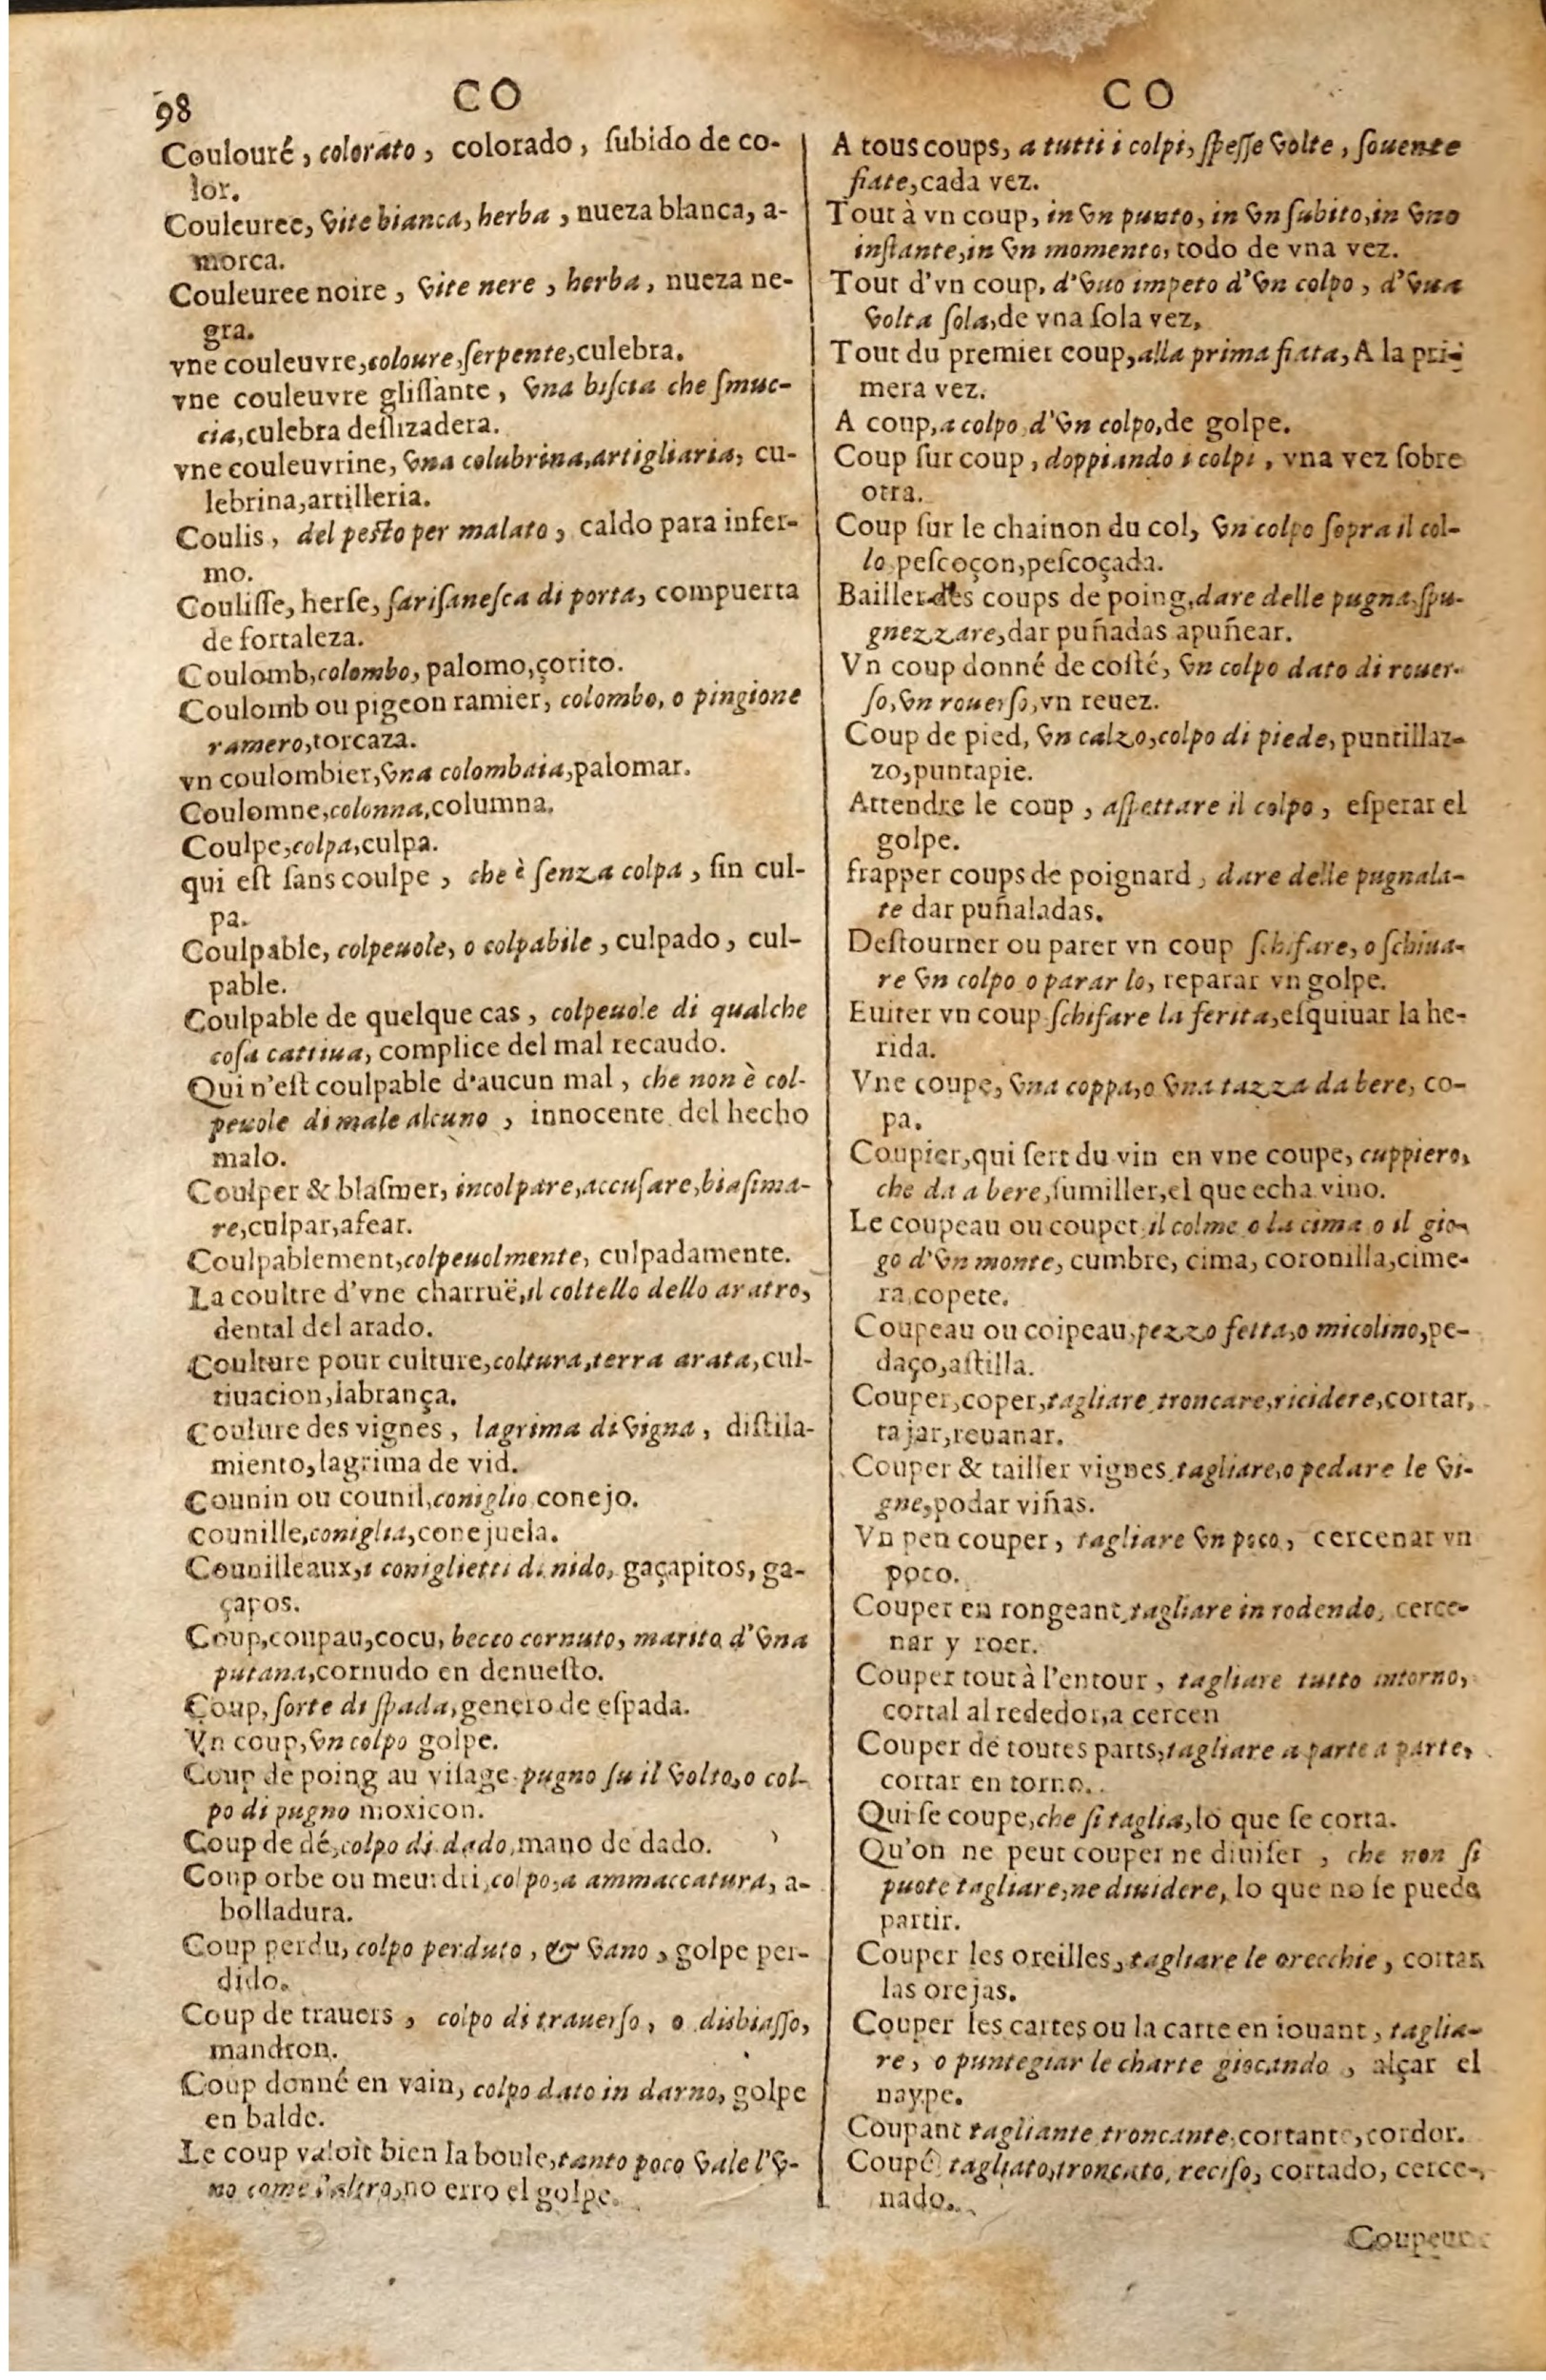 98
CO
CO
Coulouré, colorato, colorado, ſubido de co-
lor.
Couleuree, vite bianca, herba, nueza blanca, a-
morca.
Couleuree noire, vite nere, herba, nueza ne-
gra.
vne couleuvre, coloure, ſerpente, culebra.
vne couleuvre gliſſante, vna biſcia che ſmuc-
cia, culebra deſlizadera.
vne couleuvrine, vna colubrina, artigliaria, cu-
lebrina, artilleria.
Coulis, del peſto per malato, caldo para infer-
mo.
Couliſſe, herſe, ſariſaneſca di porta, compuerta
de fortaleza.
Coulomb, colombo, palomo, çorito.
Coulomb ou pigeon ramier, colombo, o pingione
ramero, torcaza.
vn coulombier, vna colombaia, palomar.
Coulomne, colonna, columna.
Coulpe, colpa, culpa.
qui eſt ſans coulpe, che è ſenza colpa, ſin cul-
pa.
Coulpable, colpeuole, o colpabile, culpado, cul-
pable.
Coulpable de quelque cas, colpeuole di qualche
coſa cattiua, complice del mal recaudo.
Qui n'eſt coulpable d'aucun mal, che non è col-
peuole di male alcuno, innocente del hecho
malo.
Coulper & blaſmer, incolpare, accuſare, biaſima-
re, culpar, afear.
Coulpablement, colpeuolmente, culpadamente.
La coultre d'vne charruë, il coltello dello aratro,
dental del arado.
Coulture pour culture, coltura, terra arata, cul-
tiuacion, labrança.
Coulure des vignes, lagrima di vigna, diſtila-
miento, lagrima de vid.
Counin ou counil, coniglio conejo.
counille, coniglia, conejuela.
Counilleaux, i coniglietti di nido, gaçapitos, ga-
çapos.
Coup, coupau, cocu, becco cornuto, marito d'vna
putana, cornudo en denueſto.
Coup, ſorte di ſpada, genero de eſpada.
Vn coup, vn colpo golpe.
Coup de poing au viſage pugno ſu il volto, o col-
po di pugno moxicon.
Coup de dé, colpo di dado, mano de dado.
Coup orbe ou meurdri, colpo, a ammaccatura, a-
bolladura.
Coup perdu, colpo perduto, & vano, golpe per-
dido.
Coup de trauers, colpo di trauerſo, o disbiaſſo,
mandron.
Coup donné en vain, colpo dato in darno, golpe
en balde.
Le coup valoit bien la boule, tanto poco vale l'v-
no come l'altro, no erro el golpe.
A tous coups, a tutti i colpi, ſpeſſe volte, ſouente
fiate, cada vez.
Tout à vn coup, in vn punto, in vn ſubito, in vno
inſtante, in vn momento, todo de vna vez.
Tout d'vn coup, d'vno impeto d'vn colpo, d'vna
volta ſola, de vna ſola vez.
Tout du premier coup, alla prima fiata, A la pri-
mera vez.
A coup, a colpo, d'vn colpo, de golpe.
Coup ſur coup, doppiando i colpi, vna vez ſobre
otra.
Coup ſur le chainon du col, vn colpo ſopra il col-
lo, peſcoçon, peſcoçada.
Bailler des coups de poing, dare delle pugna, ſpu-
gnezzare, dar puñadas apuñear.
Vn coup donné de coſté, vn colpo dato di rouer-
ſo, vn rouerſo, vn reuez.
Coup de pied, vn calzo, colpo di piede, puntillaz-
zo, puntapie.
Attendre le coup, aſpettare il colpo, eſperar el
golpe.
frapper coups de poignard, dare delle pugnala-
te dar puñaladas.
Deſtourner ou parer vn coup ſchifare, o ſchiua-
re vn colpo o parar lo, reparar vn golpe.
Euiter vn coup ſchifare la ferita, eſquiuar la he-
rida.
Vne coupe, vna coppa, o vna tazza da bere, co-
pa.
Coupier, qui ſert du vin en vne coupe, cuppiero,
che da a bere, ſumiller, el que echa vino.
Le coupeau ou coupet il colme o la cima o il gio-
go d'vn monte, cumbre, cima, coronilla, cime-
ra, copete.
Coupeau ou coipeau, pezzo fetta, o micolino, pe-
daço, aſtilla.
Couper, coper, tagliare, troncare, ricidere, cortar,
tajar, reuanar.
Couper & tailler vignes, tagliare, o pedare le vi-
gne, podar viñas.
Vn peu couper, tagliare vn poco, cercenar vn
poco.
Couper en rongeant, tagliare in rodendo, cerce-
nar y roer.
Couper tout à l'entour, tagliare tutto intorno,
cortal al rededor, a cercen
Couper de toutes parts, tagliare a parte a parte,
cortar en torno.
Qui ſe coupe, che ſi taglia, lo que ſe corta.
Qu'on ne peut couper ne diuiſer, che non ſi
puote tagliare, ne diuidere, lo que no ſe puede
partir.
Couper les oreilles, tagliare le orecchie, cortar
las orejas.
Couper les cartes ou la carte en iouant, taglia-
re, o puntegiar le charte giocando, alçar el
naype.
Coupant tagliante troncante, cortante, cordor.
Coupé tagliato, troncato, reciſo, cortado, cerce-
nado.
Coupeur